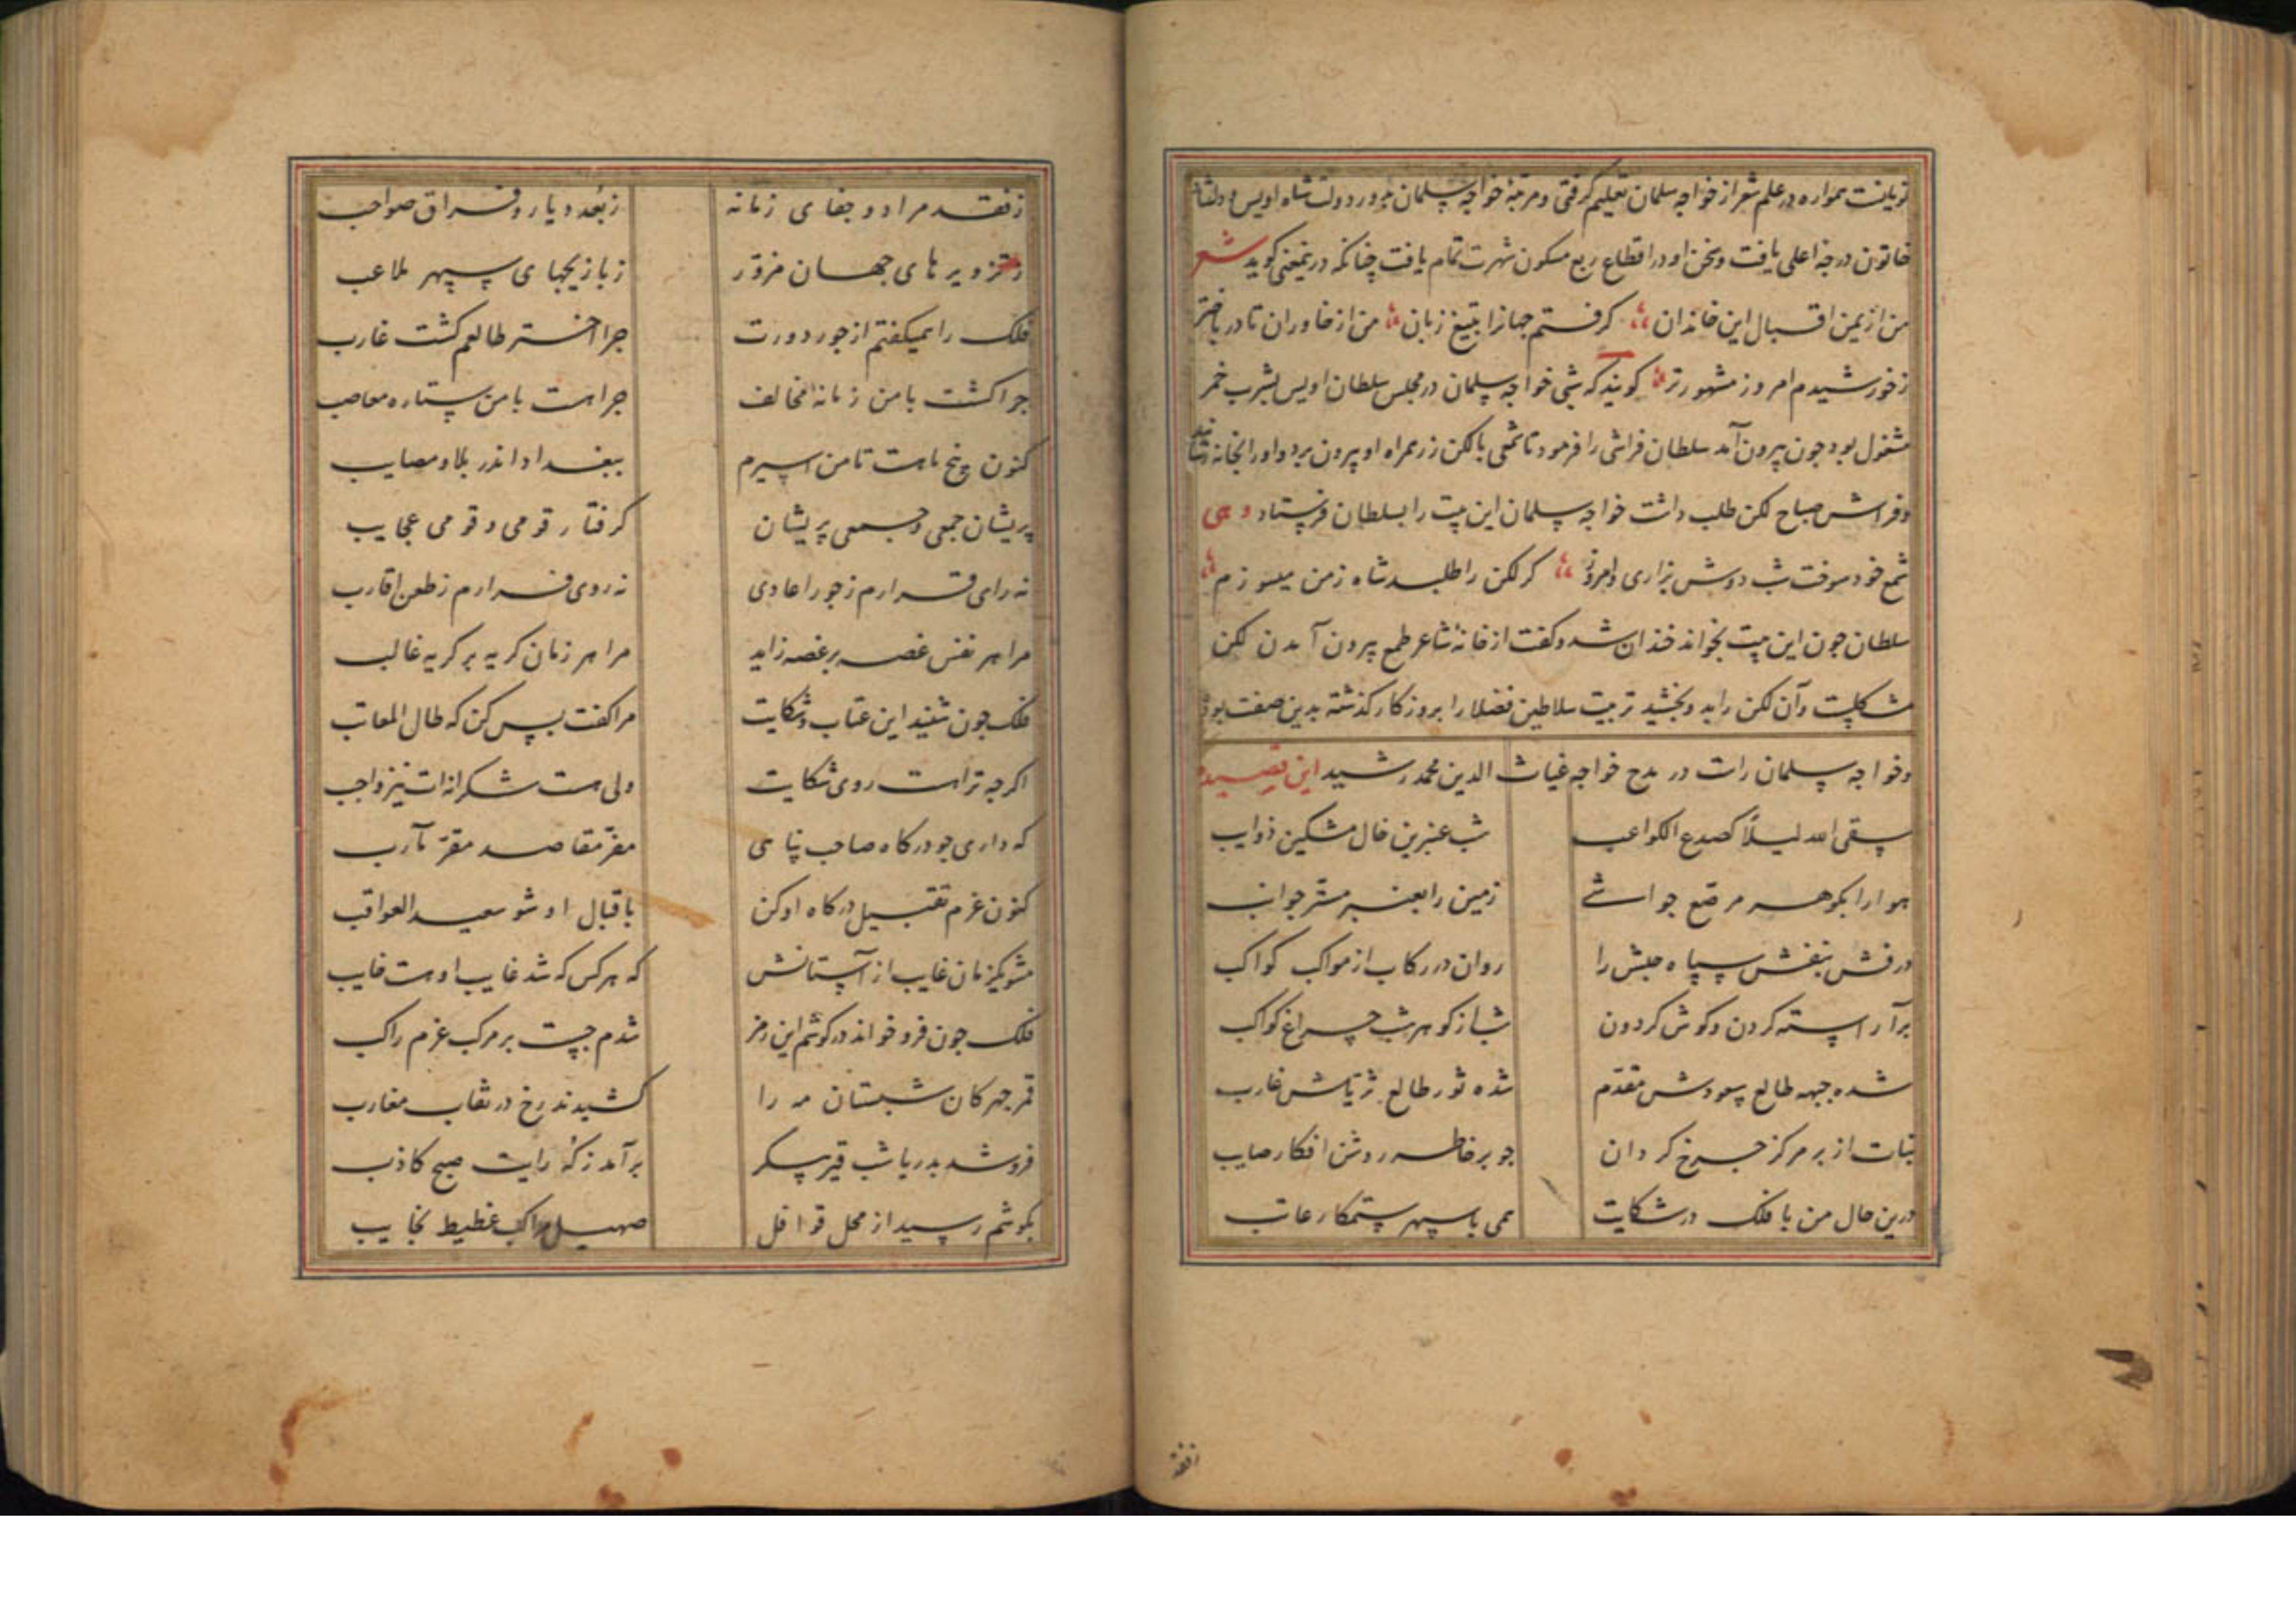 همواره در علم شعر از خواجه سلمان تعلیم کرفتی و مرتبهٔ خواجه سلمان در دور دولت شاه اویس و دلشاد
خاتون درجهٔ اعلی یافت و سخن او در اقطاع ربع مسکون شهرت تمام یافت چنانکه درینمعنی کوید شعر
من از یمن اقبال این خاندان کرفتم جهانرا بتیغ زبان من از خاوران تا در باختر
ز خورشیدم امروز مشهورتر کویند که شبی خواجه سلمان در مجلس سلطان اویس بشرب خمر
مشغول بود جون بیرون آمد سلطان فراشی را فرمود تا شمعی با لکن زر همراه او بیرون برد و او را بخانه رساند
و فراش صباح لکن طلب داشت خواجه سلمان این بیت را بسلطان فرستاد و هی
شمع خود سوخت شب دوش بزاری و امروز کر لکن را طلبد شاه ز من میسوزم
سلطان جون این بیت بخواند خندان شد و کفت از خانهٔ شاعر طمع بیرون آمدن لکن
مشکلست و آن لکن را بدو بخشید تربیت سلاطین فضلا را بروزکار کذشته بدین صفت بود
و خواجه سلمان راست در مدح خواجه غیاث الدین محمد رشید این قصیده
سقی الله لیلاً کصدع الکواعب شب عنبرین خال مشکین ذوایب
هوا را بکوهر مرصع حواشی زمین را بعنبر مستر جوانب
درفش بنفش سپاه حبش را روان در رکاب از مواکب کواکب
برآراسته کردن و کوش کردون شب از کوهر شب چراغ کواکب
شده جبهه طالع سعودش مقدم شده ثور طالع ثریاش غارب
بنات از بر مرکز جرخ کردان جو بر خاطر روشن افکار صایب
درین حال من با فلک در شکایت همی با سپهر ستمکار عاتب
ز فقد مراد و جفای زمانه ز بُعد دیار و فراق صواحب
ز تزویرهای جهان مزوّر ز بازیجهای سپهر ملاعب
فلک را همیکفتم از جور دورت جرا اختر طالعم کشت غارب
جرا کشت با من زمانه مخالف جرا هست با من ستاره معاصب
کنون پنج ماهست تا من اسیرم ببغداد اندر بلا و مصایب
پریشان جمعی و جمعی پریشان کرفتار قومی و قومی عجایب
نه رای قرارم ز جور اعادی نه روی فرارم ز طعن اقارب
مرا هر نفس غصه بر غصه زاید مرا هر زمان کریه بر کریه غالب
فلک جون شنید این عتاب و شکایت مرا کفت بس کن که طال المعاتب
اکرجه تراست روی شکایت ولی هست شکرانه‌ات نیز واجب
که داری جو درکاه صاحب پناهی مفر مقاصد مقرّ مآرب
کنون عزم تقبیل درکاه او کن باقبال او شو سعید العواقب
مشو یکزمان غایب از آستانش که هر کس که شد غایب اوست خایب
فلک جون فرو خواند در کوشم این رمز شدم جست بر مرکب عزم راکب
قمر جهرکان شبستان مه را کشیدند رخ در نقاب مغارب
فرو شد بدریا شب قیر پیکر برآمد ز که رایت صبح کاذب
بکوشم رسید از محل قوافل صهیل مراکب غطیط نجایب